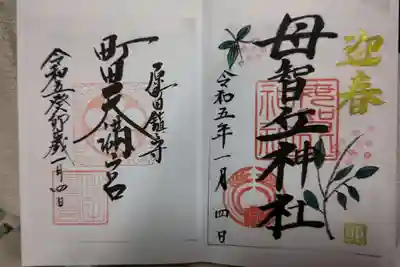 迎春
母智丘神社
令和五年一月四日
原町田鎮守
町田天満宮
令和五癸卯歳一月四日